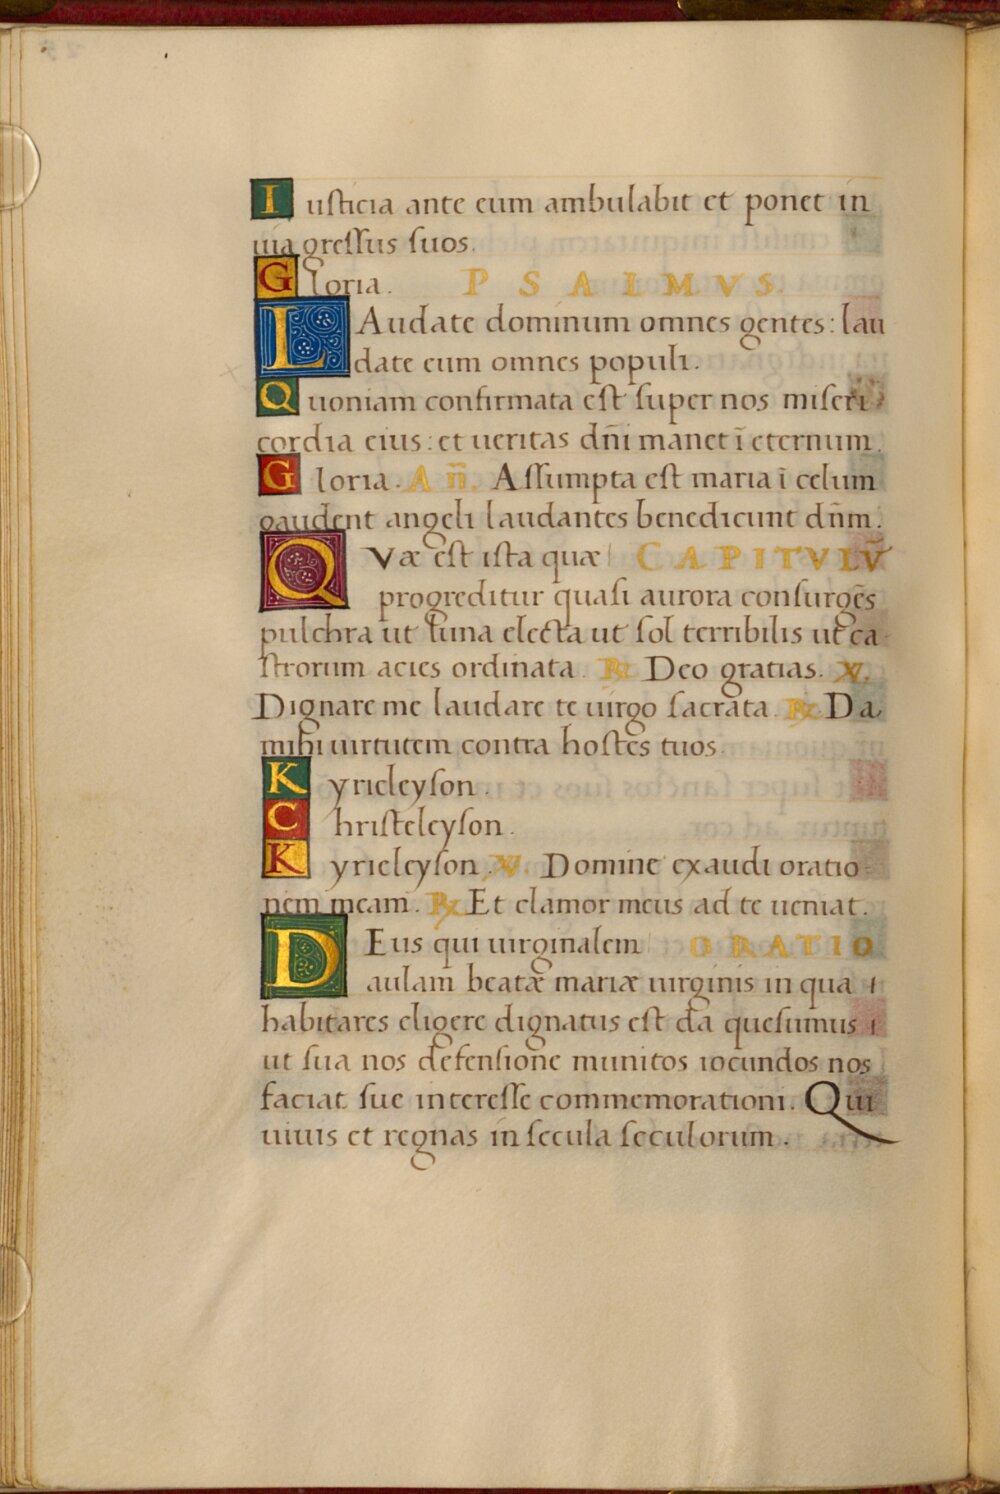 Iusticia ante eum ambulabit et ponet in
uia gressus suos.
Gloria. PSALMVS.
LAudate dominum omnes gentes: lau
date eum omnes populi.
Quoniam confirmata est super nos miseri
cordia eius: et ueritas dñi manet ĩ eternum.
Gloria. Añ. Assumpta est maria ĩ celum
gaudent angeli laudantes benedicunt dñm.
QVæ est ista quæ CAPITVLṼ
progreditur quasi aurora consurgẽs
pulchra ut luna electa ut sol terribilis ut ca
strorum acies ordinata. ℟ Deo gratias. ℣.
Dignare me laudare te uirgo sacrata. ℟. Da
mihi uirtutem contra hostes tuos.
Kyrieleyson.
Christeleyson.
Kyrieleyson. ℣. Domine exaudi oratio
nem meam. ℟ Et clamor meus ad te ueniat.
DEus qui uirginalem ORATIO
aulam beatæ mariæ uirginis in qua
habitares eligere dignatus est da quesumus
ut sua nos defensione munitos iocundos nos
faciat sue interesse commemorationi. Qui
uiuis et regnas in secula seculorum.